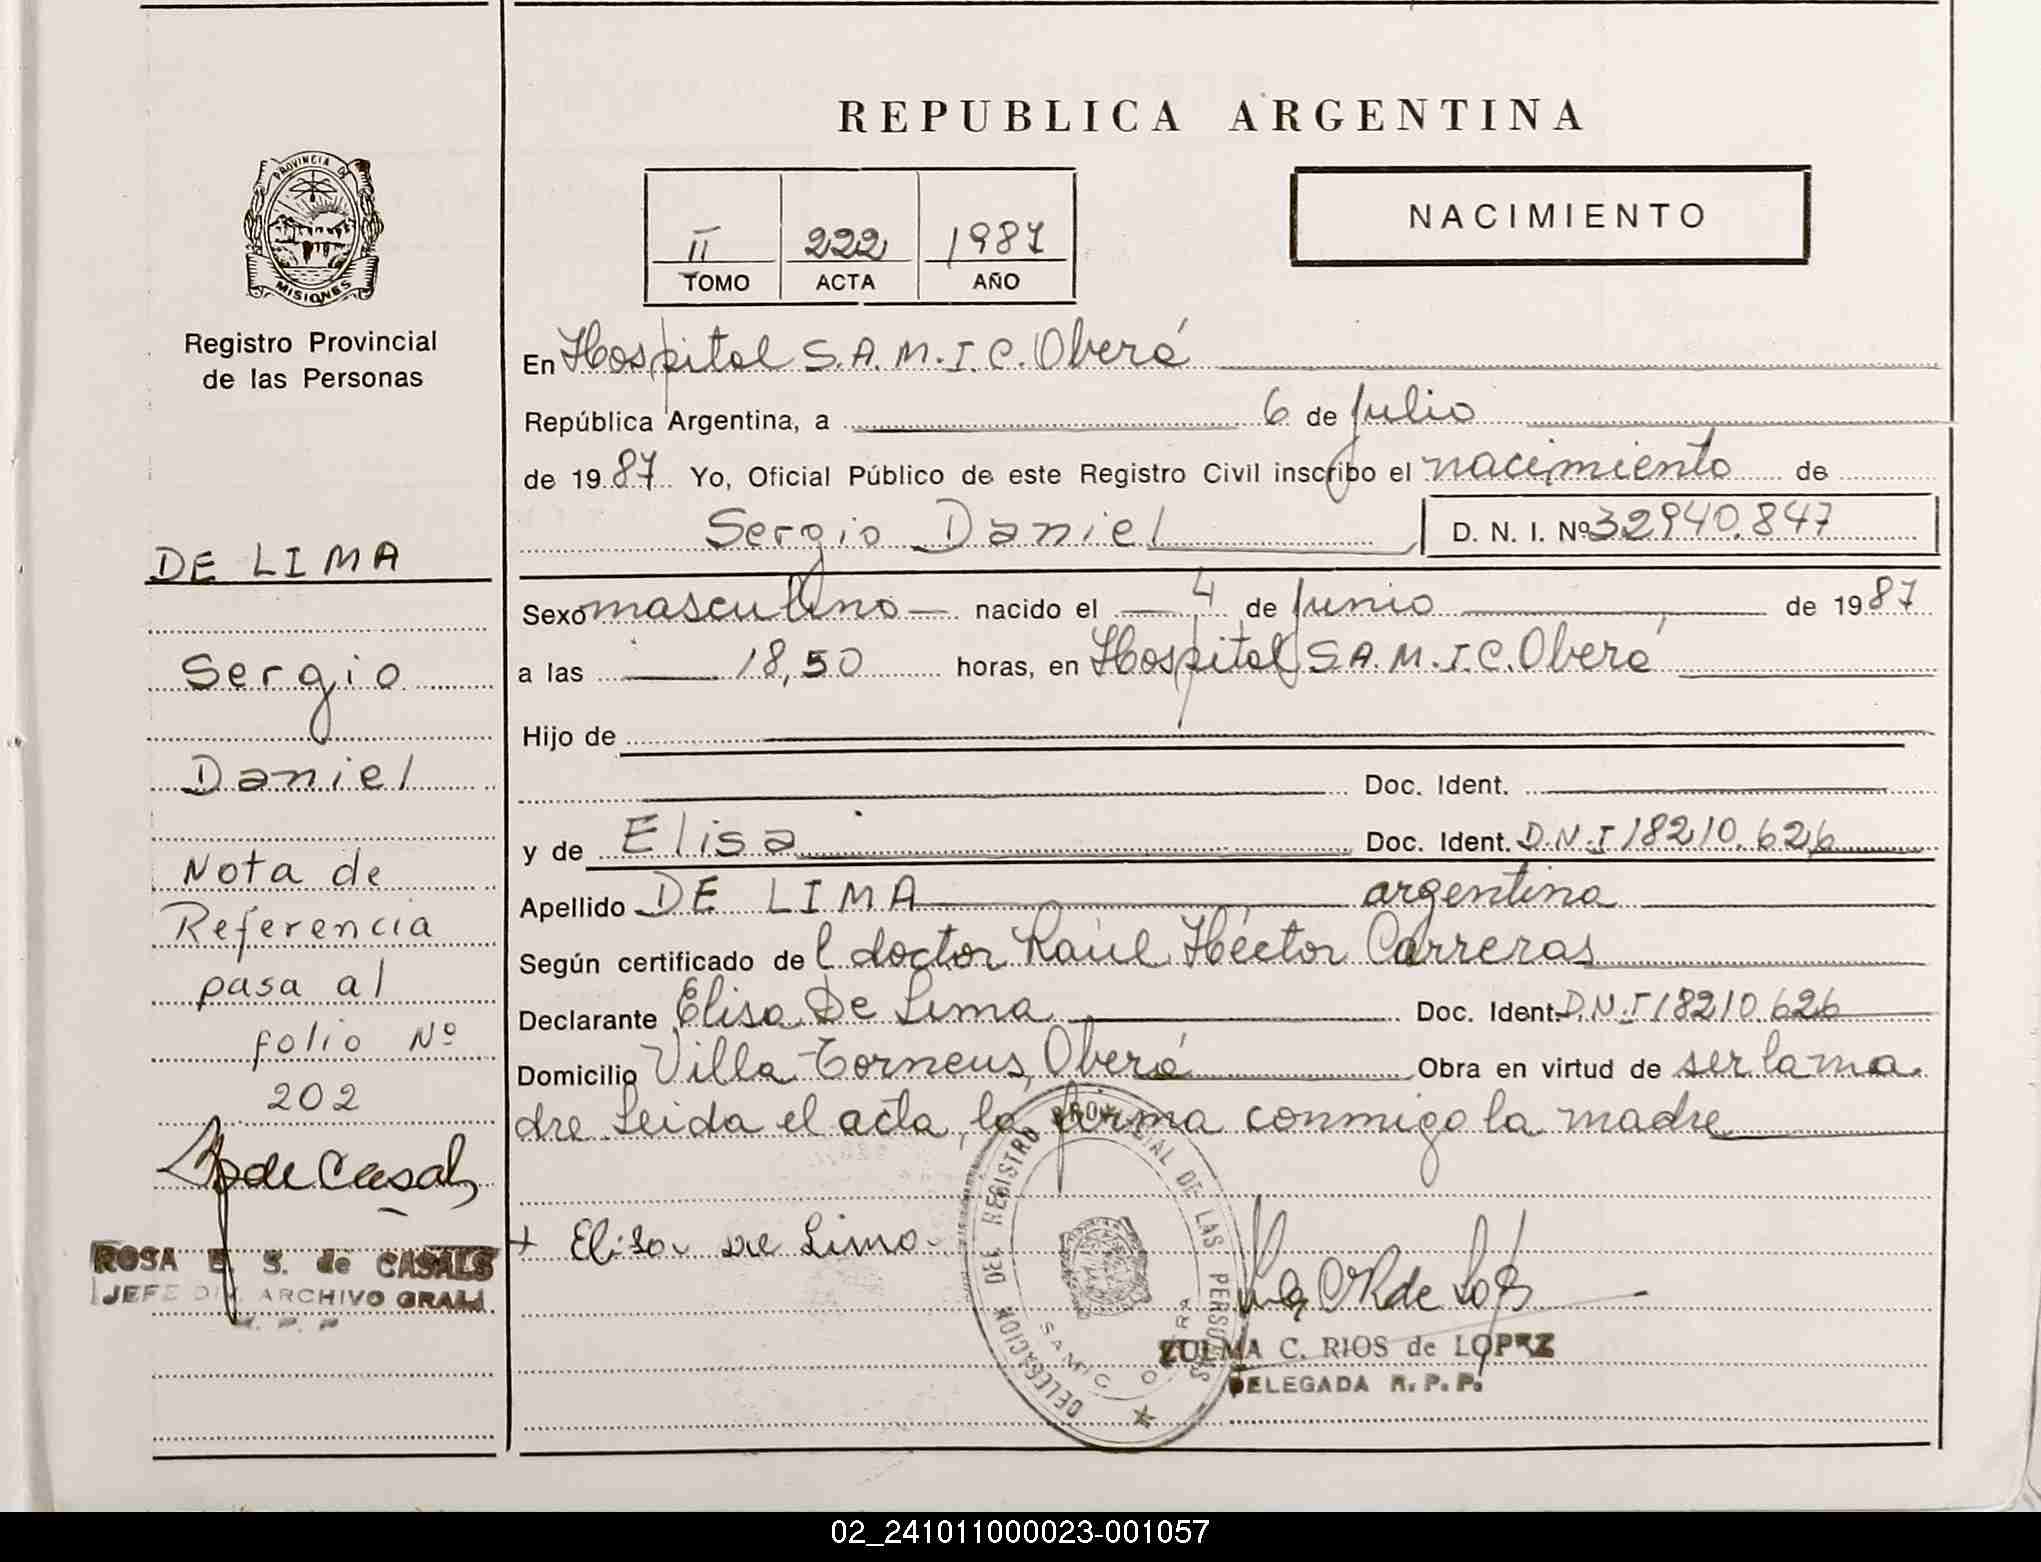 REPUBLICA ARGENTINA
PROVINCIA D
MISIONES
Registro Provincial
de las Personas
II 222 1987
TOMO ACTA AÑO
NACIMIENTO
En Hospital S.A.M.I.C. Oberá
República Argentina, a 6 de Julio
de 1987 Yo, Oficial Público de este Registro Civil inscribo el nacimiento de
Sergio Daniel D. N. I. Nº 32940.847
Sexo masculino nacido el 4 de Junio de 1987
a las 18,50 horas, en Hospital S.A.M.I.C. Oberá
Hijo de
Doc. Ident.
y de Elisa Doc. Ident. D.N.I 18210.626
Apellido DE LIMA argentina
Según certificado del doctor Raúl Héctor Carreras
Declarante Elisa De Lima Doc. Ident. D.N.I 18210626
Domicilio Villa Torneus, Oberá Obra en virtud de ser la ma
dre Leida el acta, la firma conmigo la madre
+ Elisa de Lima
DELEGACION DEL REGISTRO PROVINCIAL DE LAS PERSONAS
SAMIC
ZULMA C. RIOS de LOPEZ
DELEGADA R. P. P.
DE LIMA
Sergio
Daniel
Nota de
Referencia
pasa al
folio Nº
202
de Casals
ROSA E. S. de CASALS
JEFE DIV. ARCHIVO GRAL.
R. P. P
02_241011000023-001057